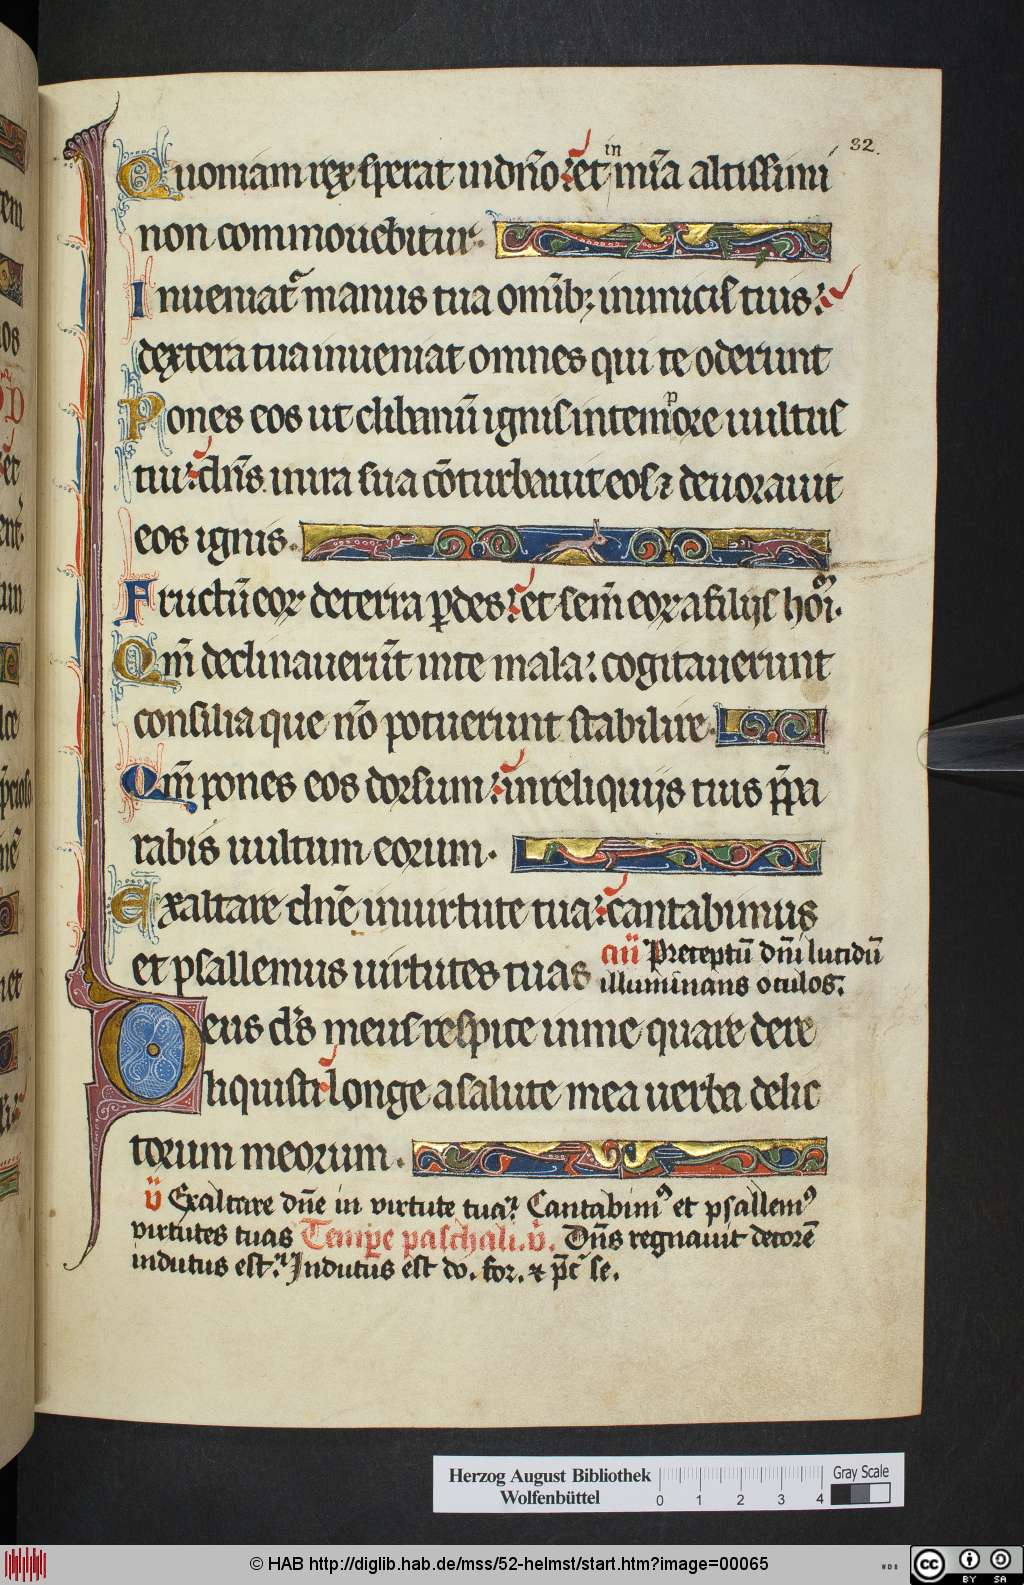 32.
Quoniam rex sperat in dn̄o: et in mīa altissimi
non commouebitur.
Inueniatᷣ manus tua om̄ibꝫ inimicis tuis:
dextera tua inueniat omnes qui te oderunt
Pones eos ut clibanū ignis in temꝑore uultus
tui: dn̄s in ira sua cōturbauit eos ⁊ deuorauit
eos ignis.
Fructū eoꝝ de terra ꝑdes: et sem̄ eoꝝ a filijs hoı̄.
Qm̄ declinauerūt in te mala: cogitauerunt
consilia que nō potuerunt stabilire.
Qm̄ pones eos dorsum: in reliquijs tuis p̄pa
rabis uultum eorum.
Exaltare dn̄e in uirtute tua: cantabimus
et psallemus uirtutes tuas
añ Preceptū dn̄i lucidū
illuminans oculos.
Deus ds̄ meus respice in me quare dere
liquisti longe a salute mea uerba delic
torum meorum.
v̈ Exaltare dn̄e in virtute tua: Cantabimꝰ et psallemꝰ
virtutes tuas Tempe paschali. v̈. Dn̄s regnauit decorē
indutus est: Indutus est do. for. ⁊ p̄c se.
Herzog August Bibliothek
Wolfenbüttel
0 1 2 3 4
Gray Scale
© HAB http://diglib.hab.de/mss/52-helmst/start.htm?image=00065
WDB
cc BY SA